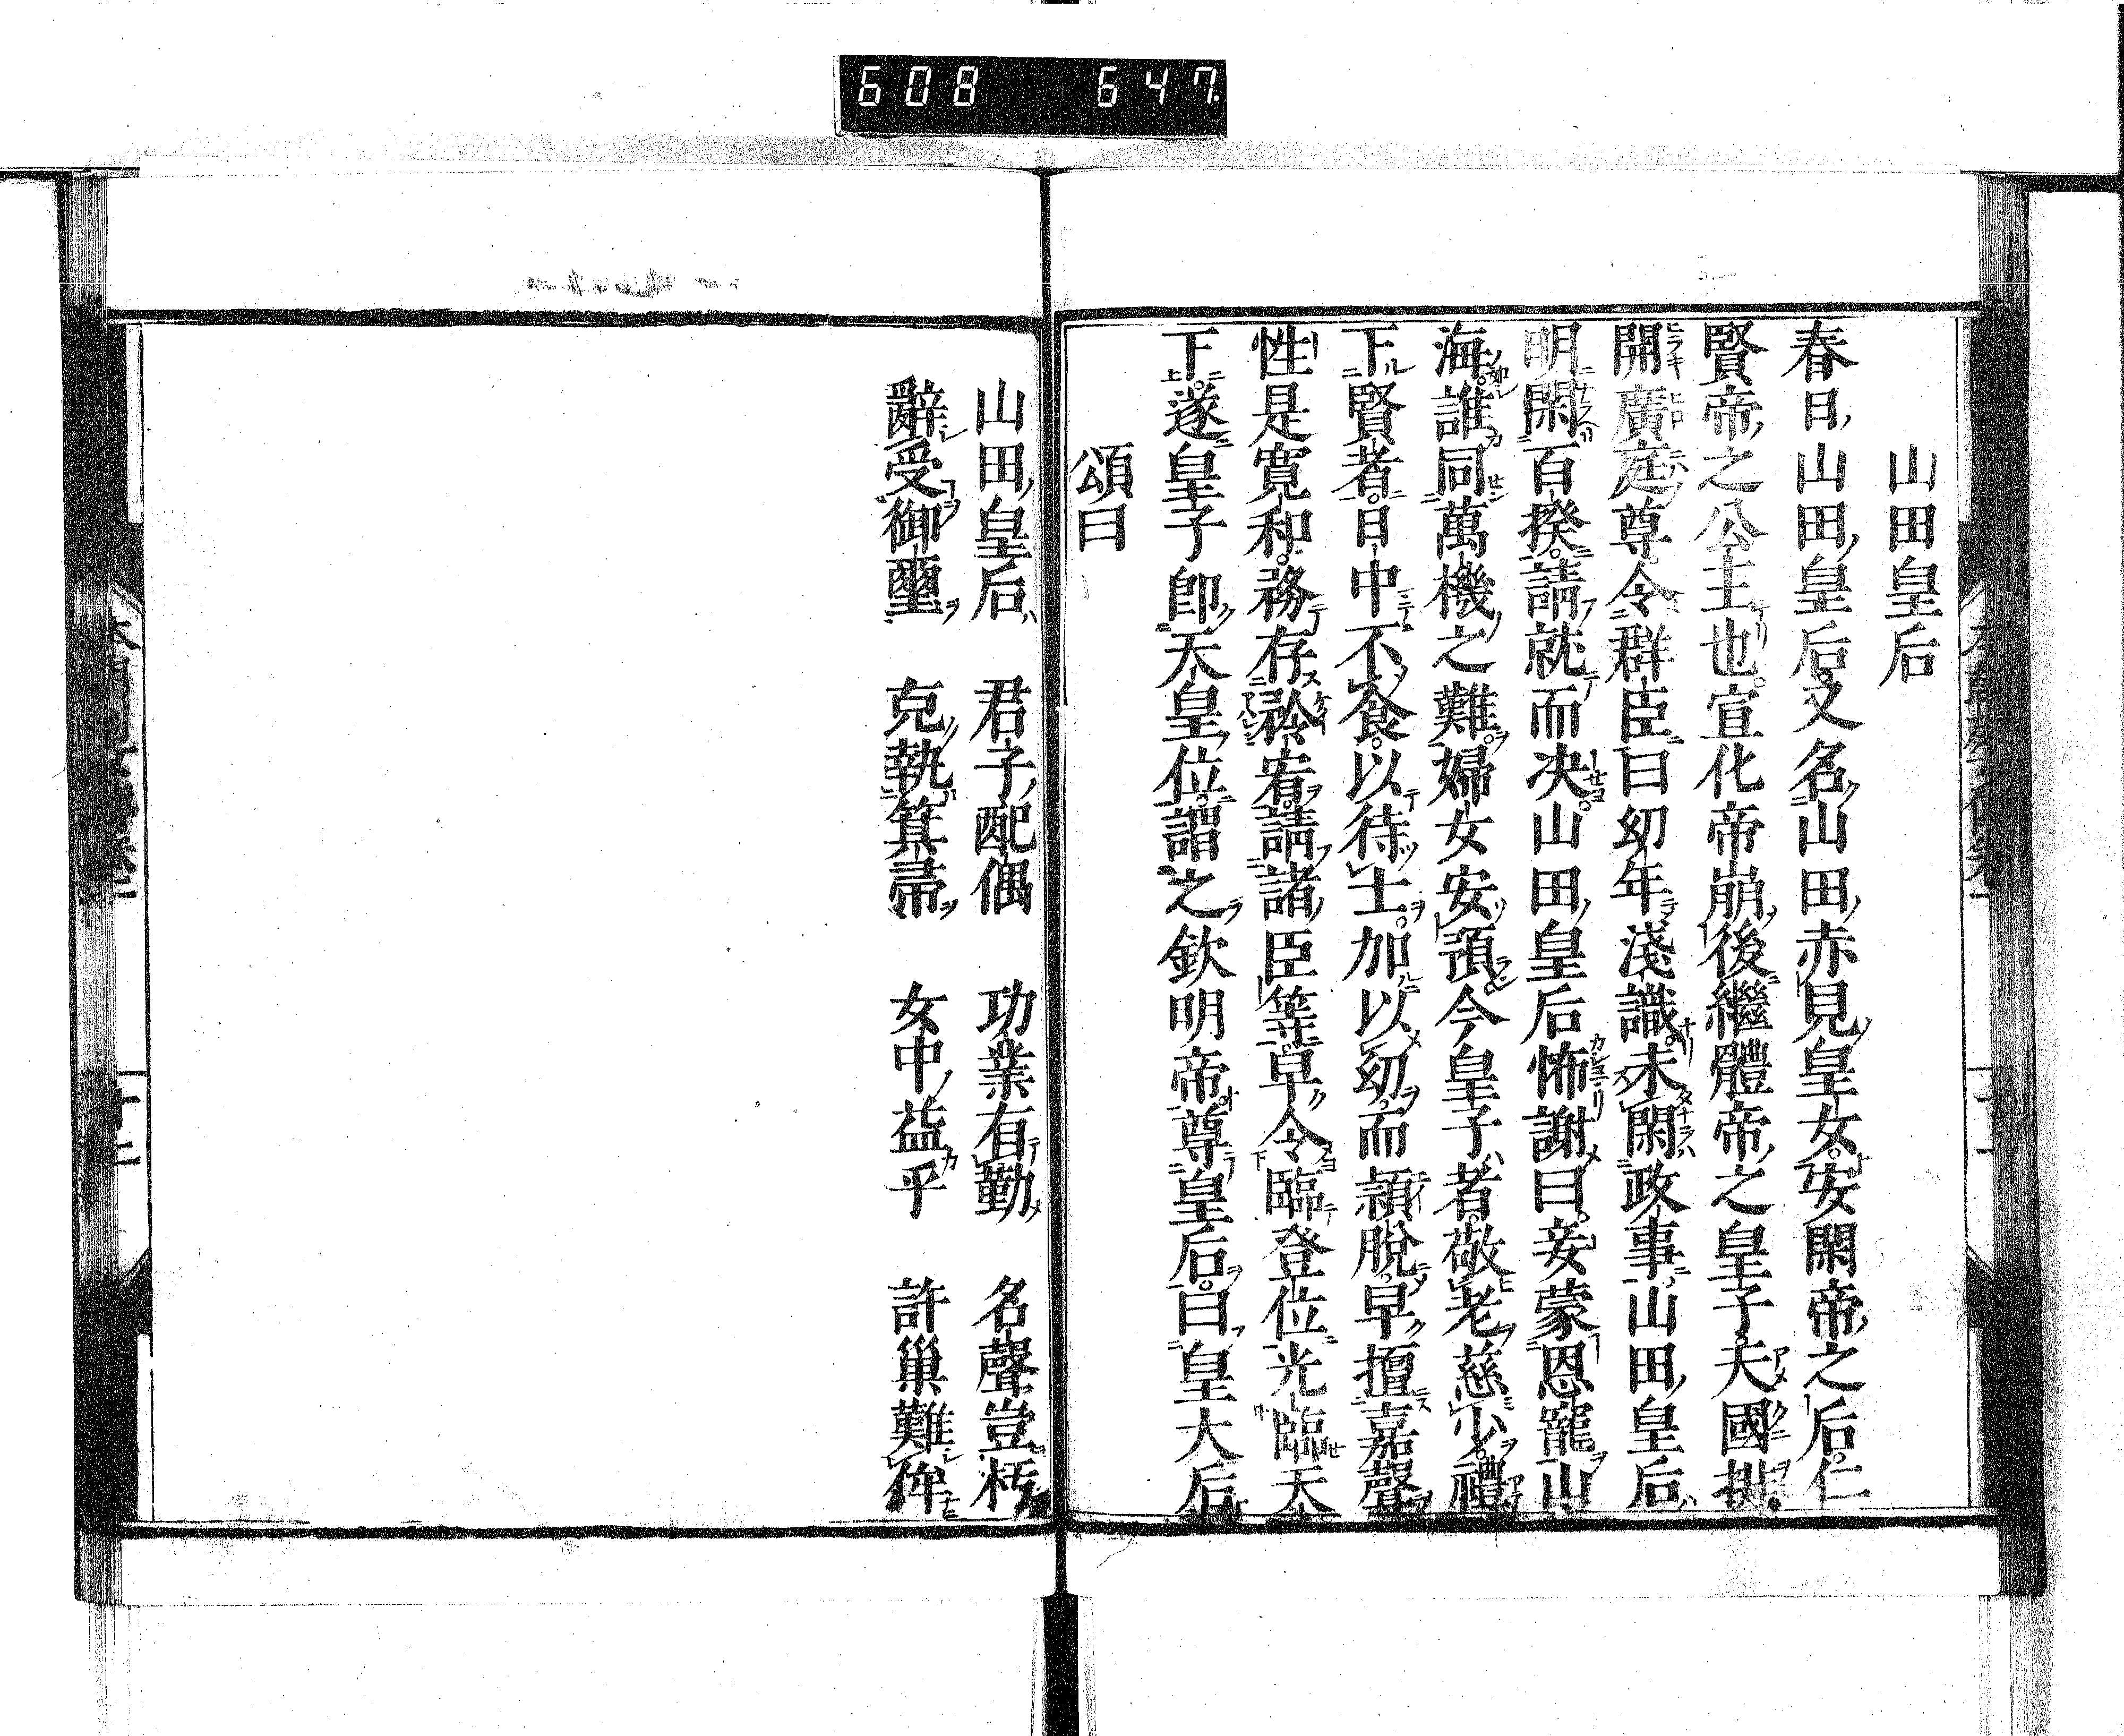 608 647
山田皇后
春日山田皇后又名山田赤見皇女安閑帝之后仁
賢帝之公主也宣化帝崩後繼體帝之皇子天國排
開廣庭尊令群臣曰幼年淺識未閑政事山田皇后
明閑百揆請就而決山田皇后怖謝曰妾蒙恩寵山
海誰同萬機之難婦女安預今皇子者敬老慈少禮
下賢者日中不食以待士加以幼而頴脫早擅嘉聲
性是寛和務存矜宥請諸臣等早令臨登位光臨天
下遂皇子卽天皇位謂之欽明帝尊皇后曰皇大后
頌曰
山田皇后 君子配偶 功業有勤 名聲豈朽
辭受御璽 克執箕帚 女中益乎 許巢難侔